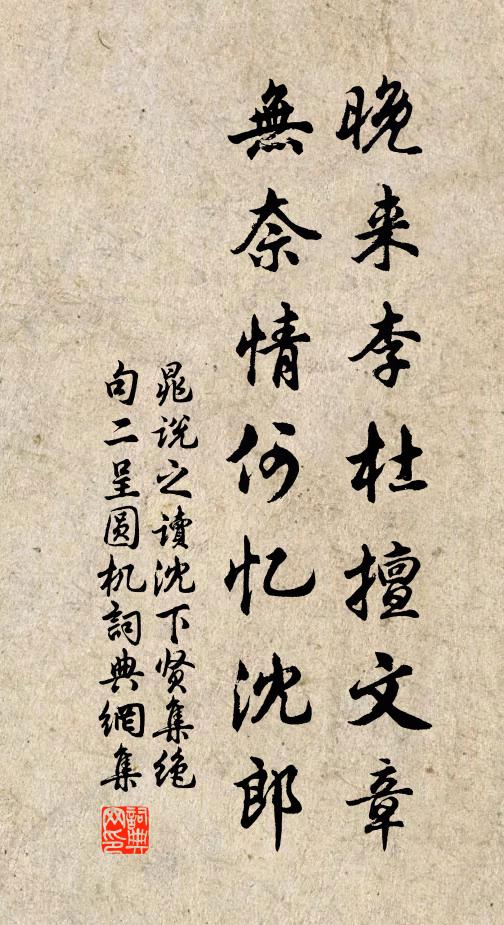 晚来李杜擅文章
無奈情何忆沈郎
晁说之讀沈下贤集绝
句二呈圆机詞典網集
詞典网印